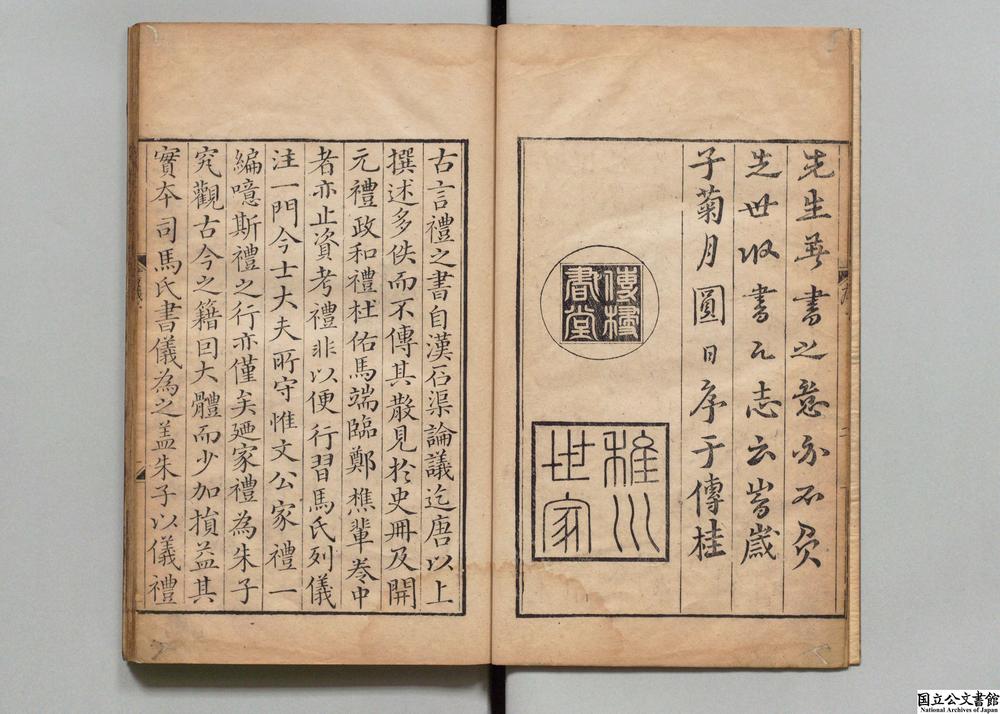 先生著書之意亦不負
先世收書之志云峕歲
子菊月圓日序于傳桂
傳樓
書堂
稚川
世家
古言禮之書自漢石渠論議迄唐以上
撰述多佚而不傳其散見於史冊及開
元禮政和禮杜佑馬端臨鄭樵輩卷中
者亦止資考禮非以便行習馬氏列儀
注一門今士大夫所守惟文公家禮一
編噫斯禮之行亦僅矣廼家禮為朱子
究觀古今之籍因大體而少加損益其
實本司馬氏書儀為之盖朱子以儀禮
国立公文書館
National Archives of Japan